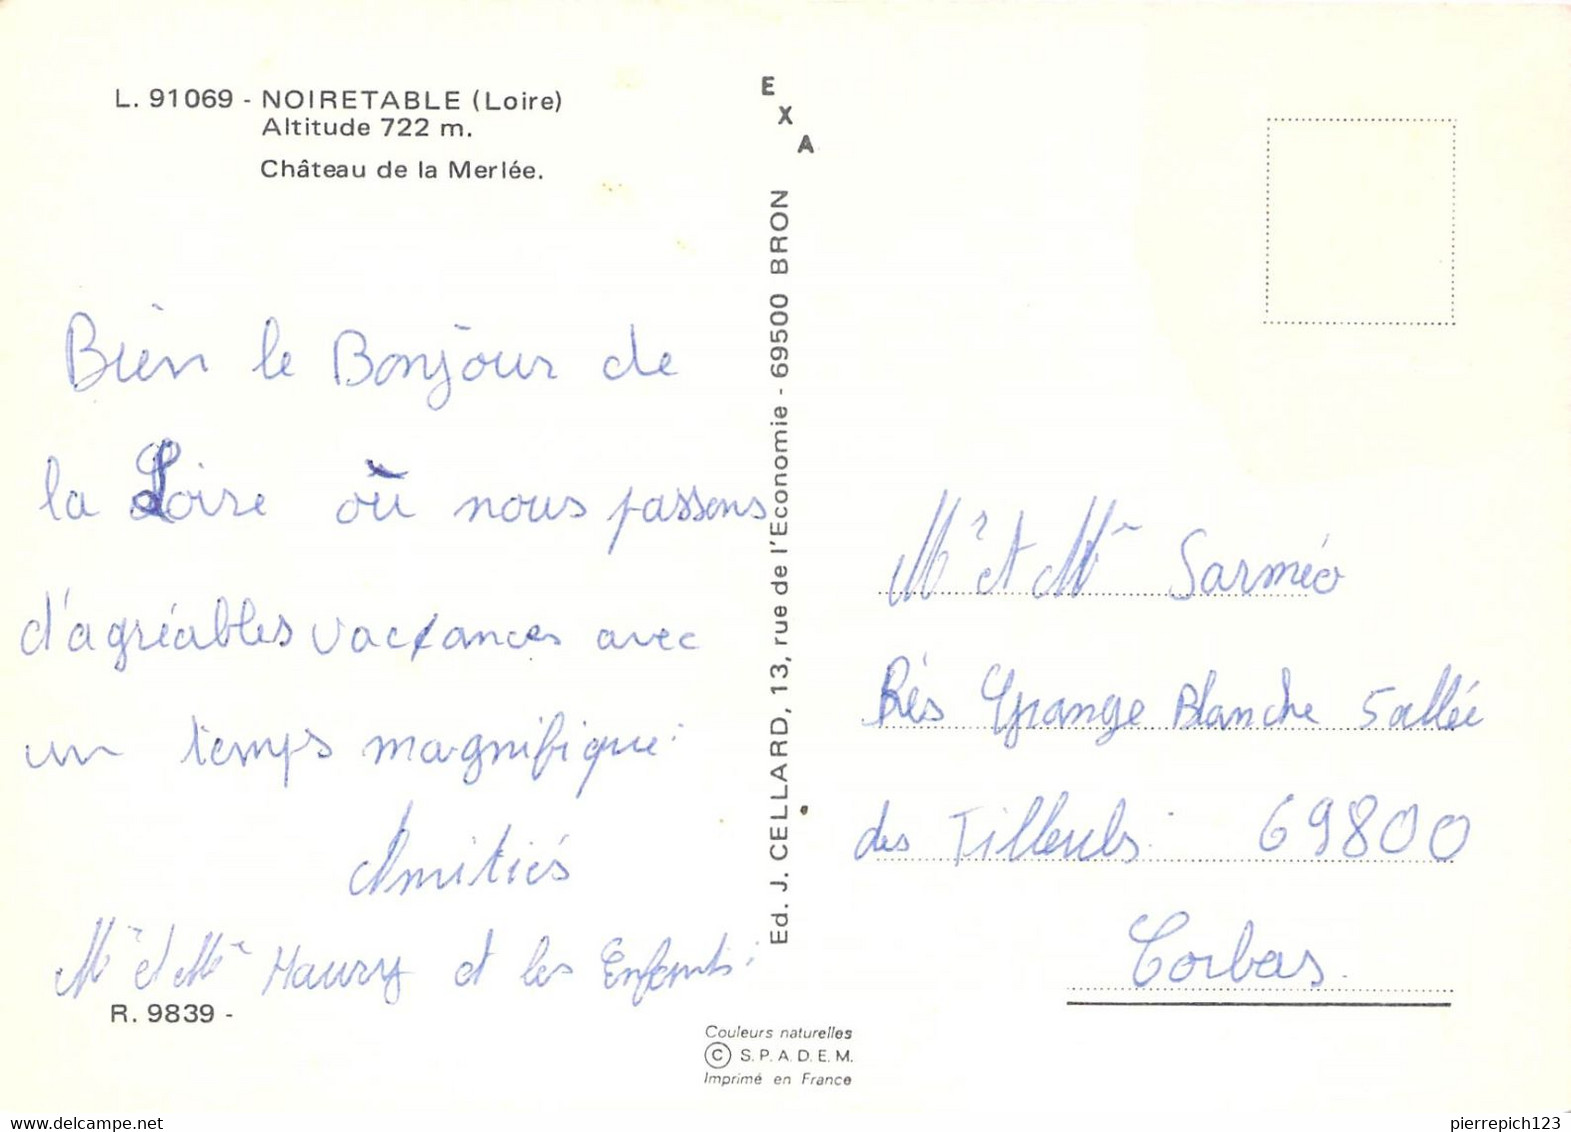 L. 91069 - NOIRETABLE (Loire)
Altitude 722 m.
Château de la Merlée.
Bien le Bonjour de
la Loire où nous passons
d'agréables vacances avec
un temps magnifique.
Amitiés
Mr et Me Maury et les Enfants.
R. 9839 -
EXA
Ed. J. CELLARD, 13, rue de l'Economie - 69500 BRON
Couleurs naturelles
© S.P.A.D.E.M.
Imprimé en France
Mr et Me Sarméo
Rés Grange Blanche 5 allée
des Tilleuls. 69800
Corbas.
delcampe.net
pierrepich123